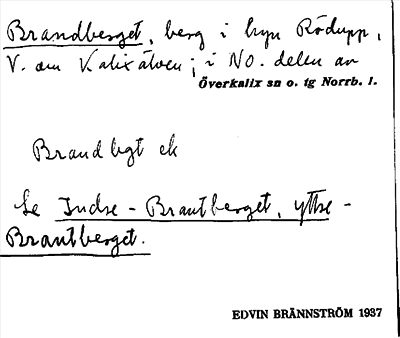 Brandberget, berg i byn Rödupp,
V. om Kalixälven; i NO. delen av
Överkalix sn o. tg Norrb. l.
Brandbgt ek
Se Indre-Brantberget, yttre-
Brantberget.
EDVIN BRÄNNSTRÖM 1937